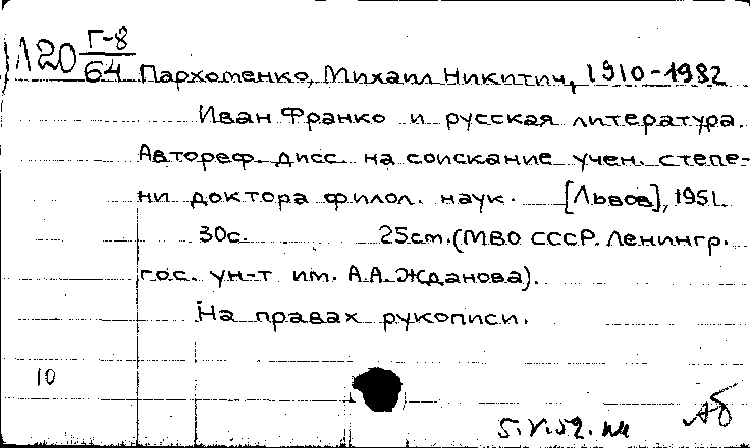 Л20 Г-8/64 Пархоменко, Михаил Никитич, 1910-1982
Иван Франко и русская литература.
Автореф. дисс. на соискание учен. степе-
ни доктора филол. наук. [Львов], 1951.
30с. 25см. (МВО СССР. Ленингр.
гос. ун-т им. А.А.Жданова).
На правах рукописи.
10
5.V.52.